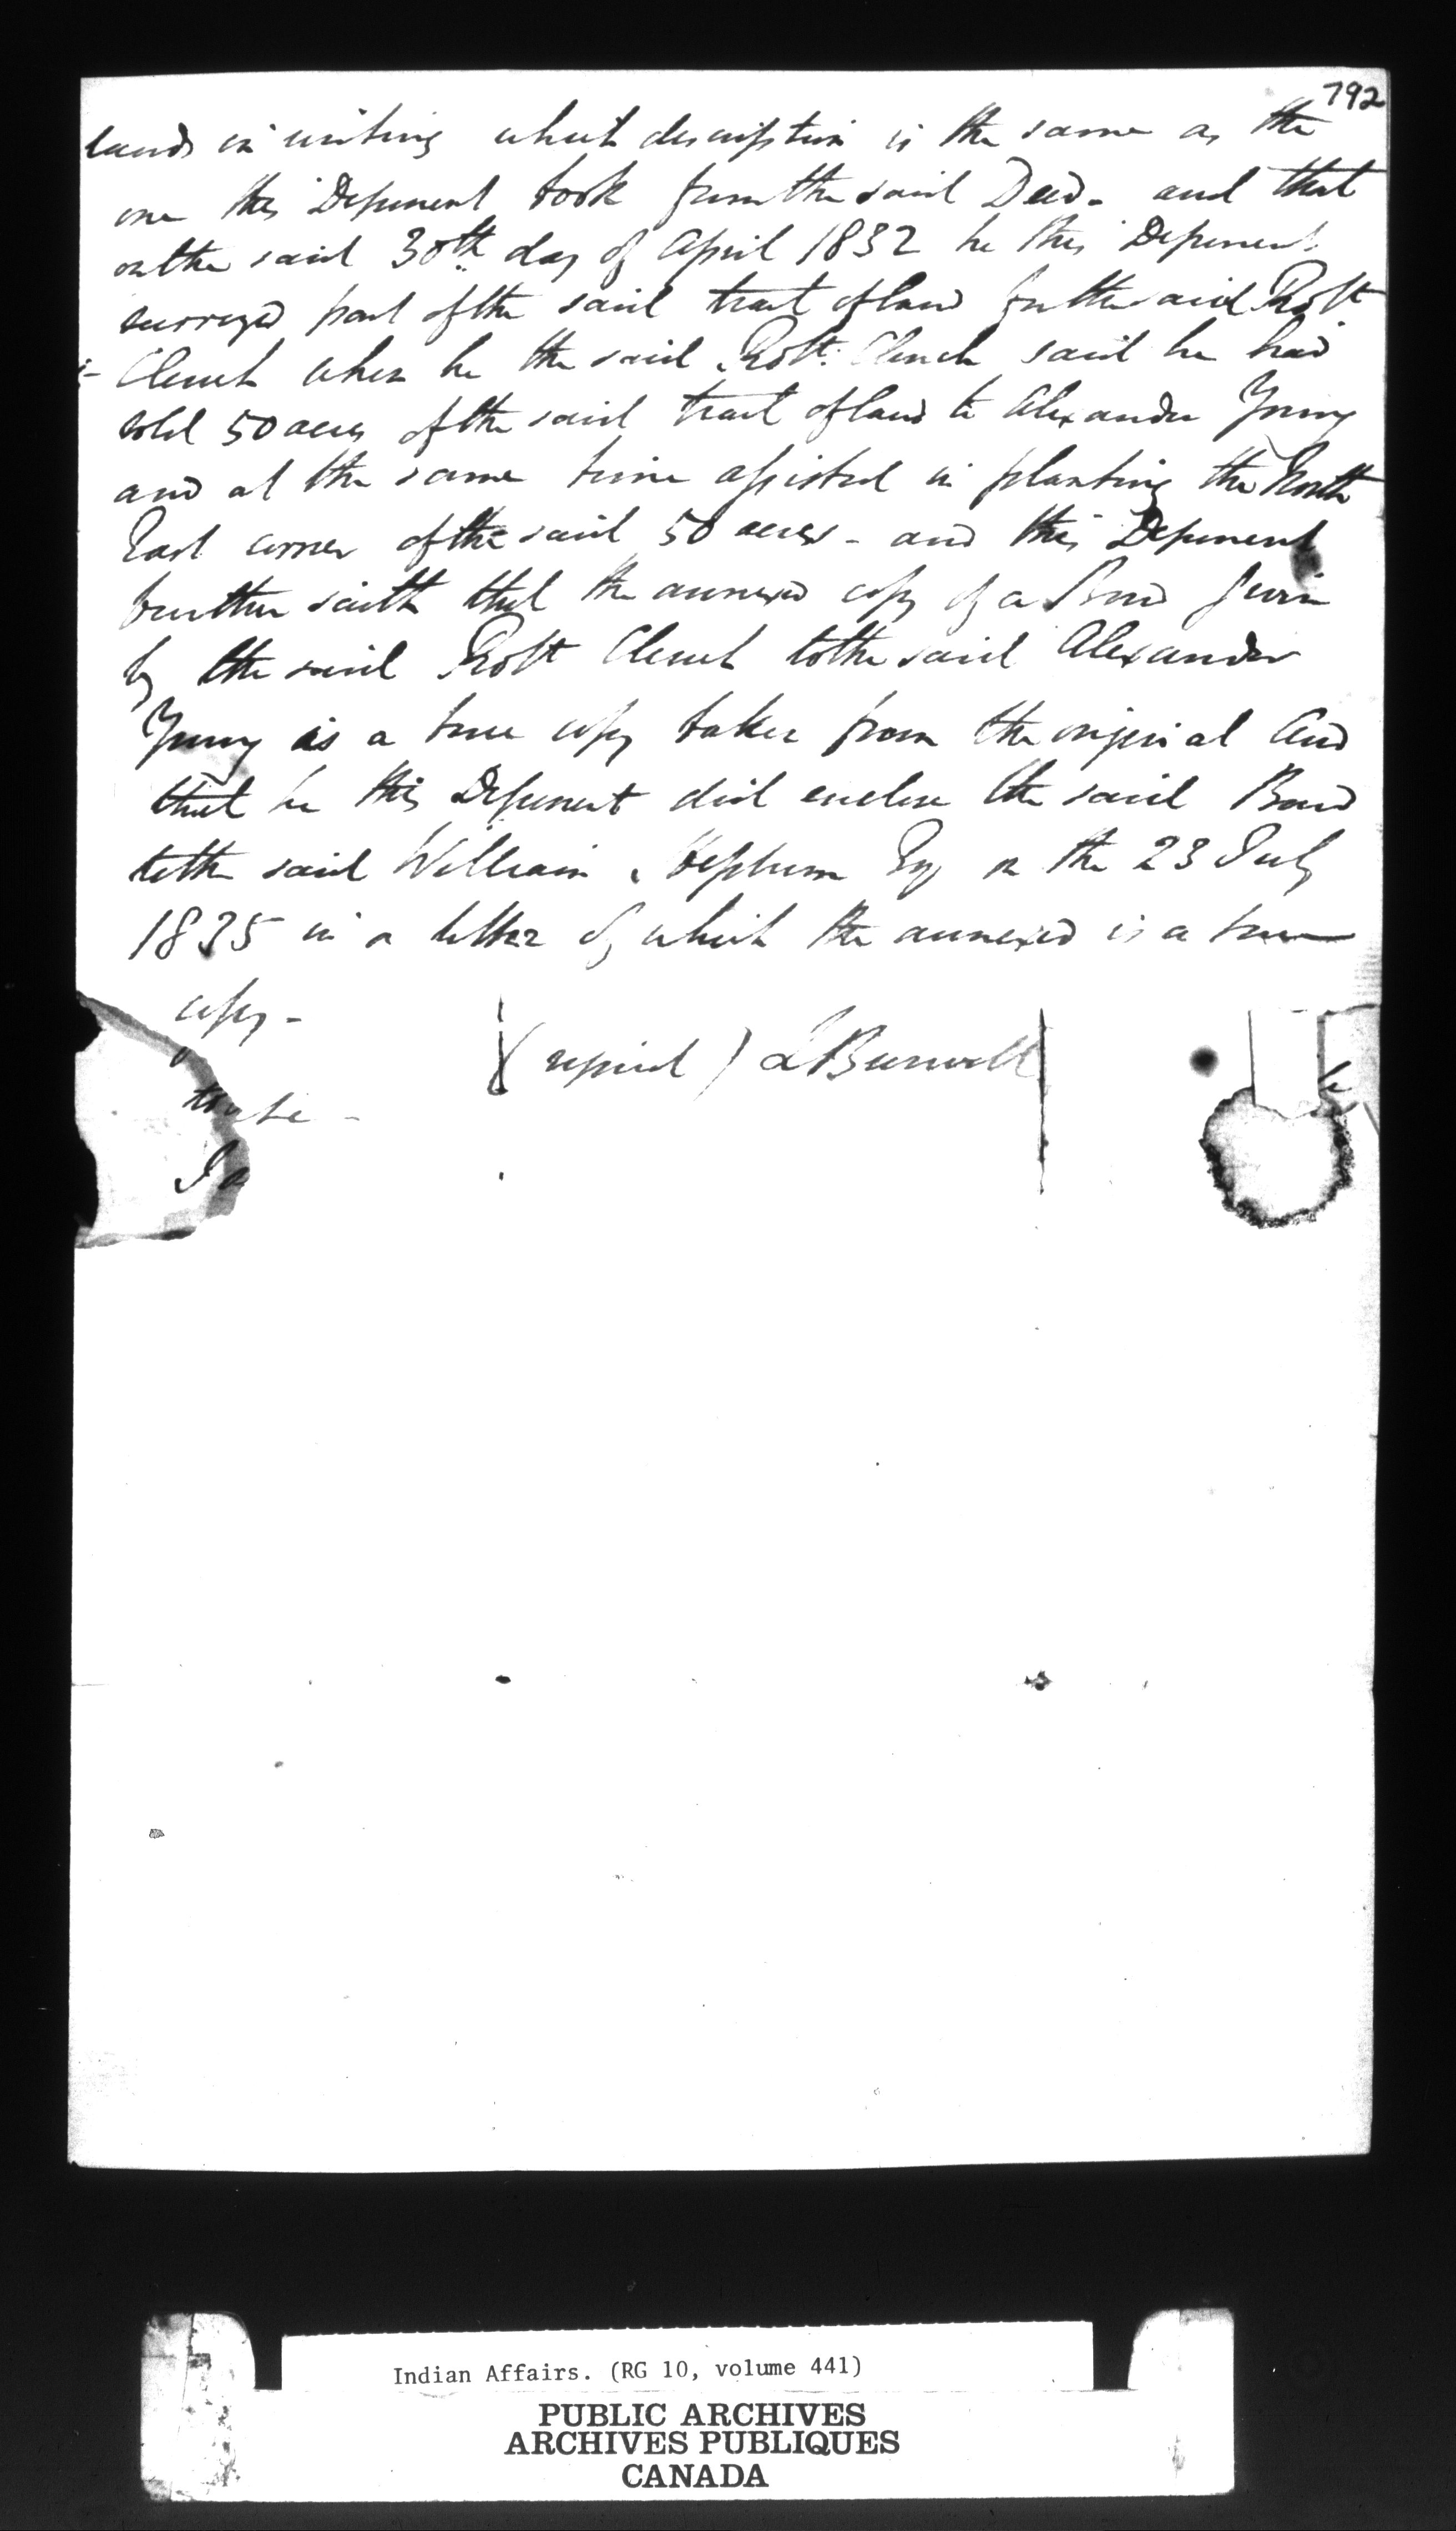 792
lands in writing which description is the same as the
one this Deponent took from the said Deed - and that
on the said 30th day of April 1832 he this Deponent
surveyed part of the said tract of land for the said Robt
Clench when he the said Robt. Clench said he had
sold 50 acres of the said tract of land to Alexander Young
and at the same time assisted in planting the North
East corner of the said 50 acres - and this Deponent
further saith that the annexed copy of a Bond given
by the said Robt Clench to the said Alexander
Young is a true copy taken from the original and
that he this Deponent did enclose the said Bond
to the said William Hepburn Esq on the 23 July
1835 in a letter of which the annexed is a true
copy -
(signed) L Burwell
Indian Affairs. (RG 10, volume 441)
PUBLIC ARCHIVES
ARCHIVES PUBLIQUES
CANADA